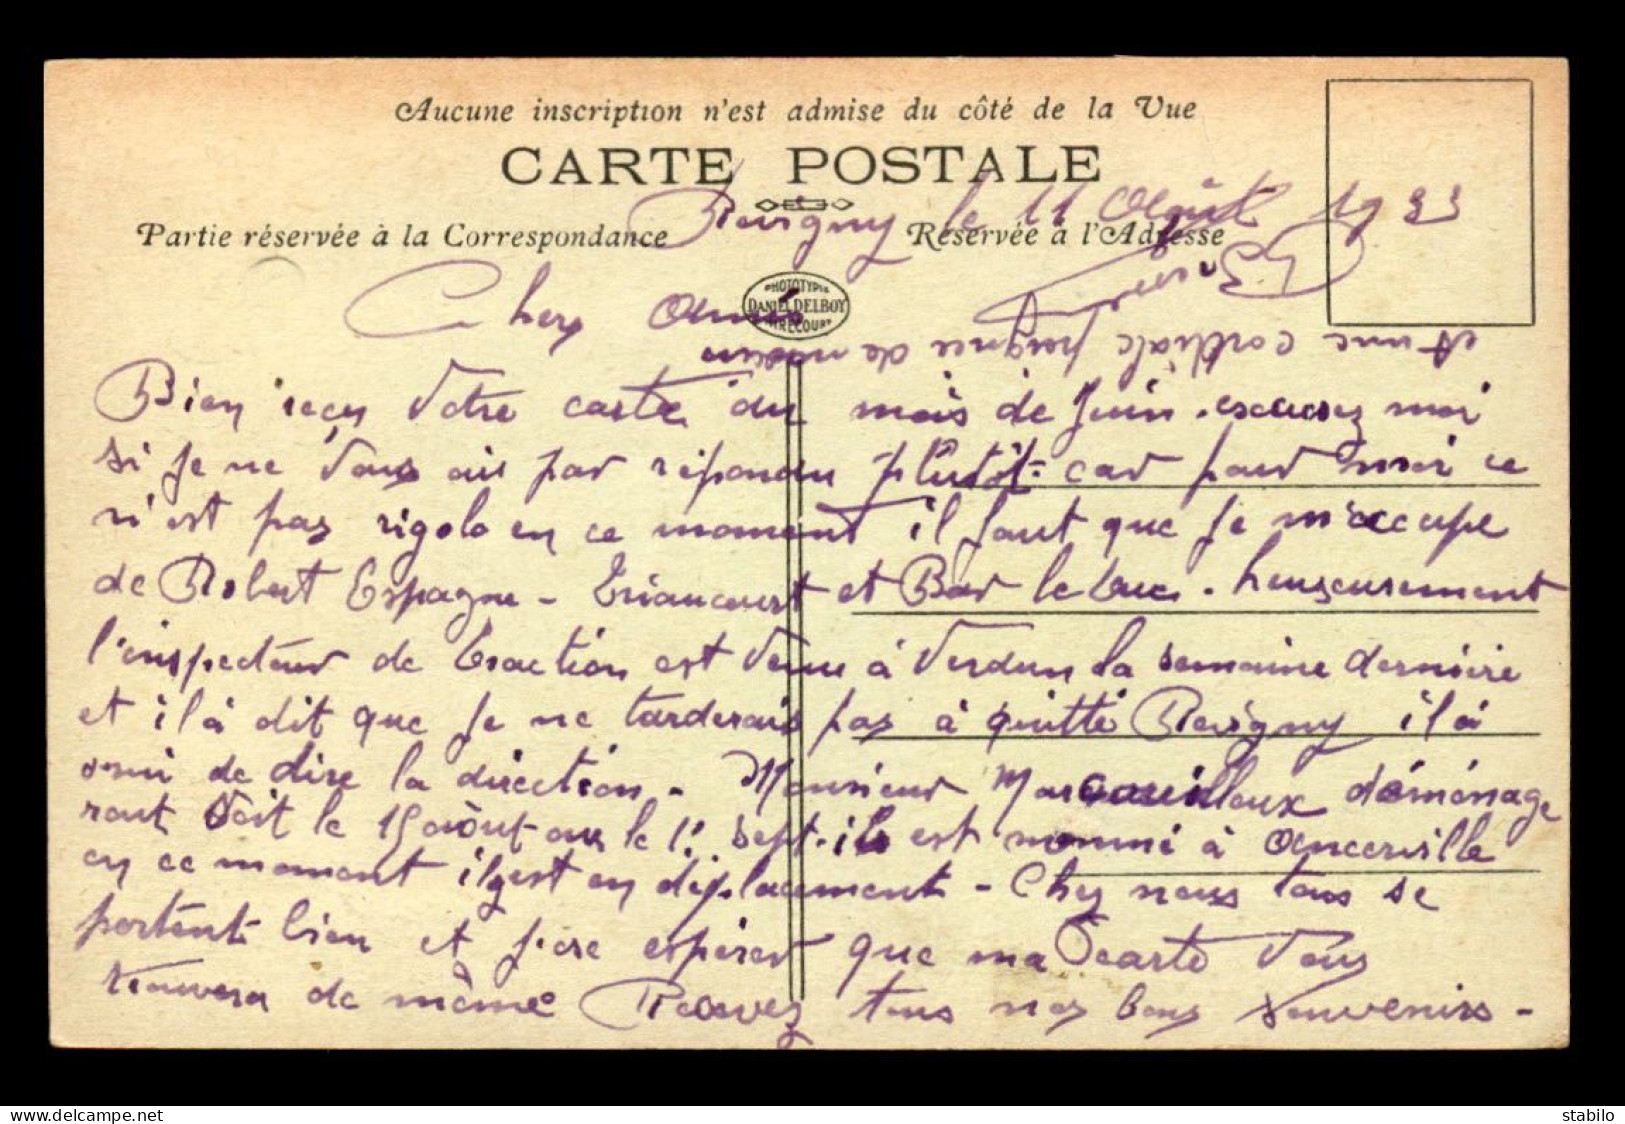 Aucune inscription n'est admise du côté de la Vue
CARTE POSTALE
Partie réservée à la Correspondance
Réservée à l'Adresse
Revigny le 11 Août 1933
PHOTOTYPIE
DANIEL DELBOY
MIRECOURT
Chers Amis
Bien reçu Votre carte du mois de Juin. excusez moi
si je ne Vous ais pas répondu plutôt. car pour moi ce
n'est pas rigolo en ce moment il faut que je m'occupe
de Robert Espagne - Triaucourt et Bar le Duc. heureusement
l'inspecteur de traction est Venu à Verdun la semaine dernière
et il à dit que je ne tarderais pas à quitté Revigny il à
de dire la direction. Monsieur déménage
ront soit le 15 août ou le 1er sept. il est nommé à
en ce moment il est en déplacement - Chez nous tous se
portent bien et j'ose espérer que ma carte Vous
trouvera de même Recevez tous nos bons souvenirs -
et une cordiale poignée de main